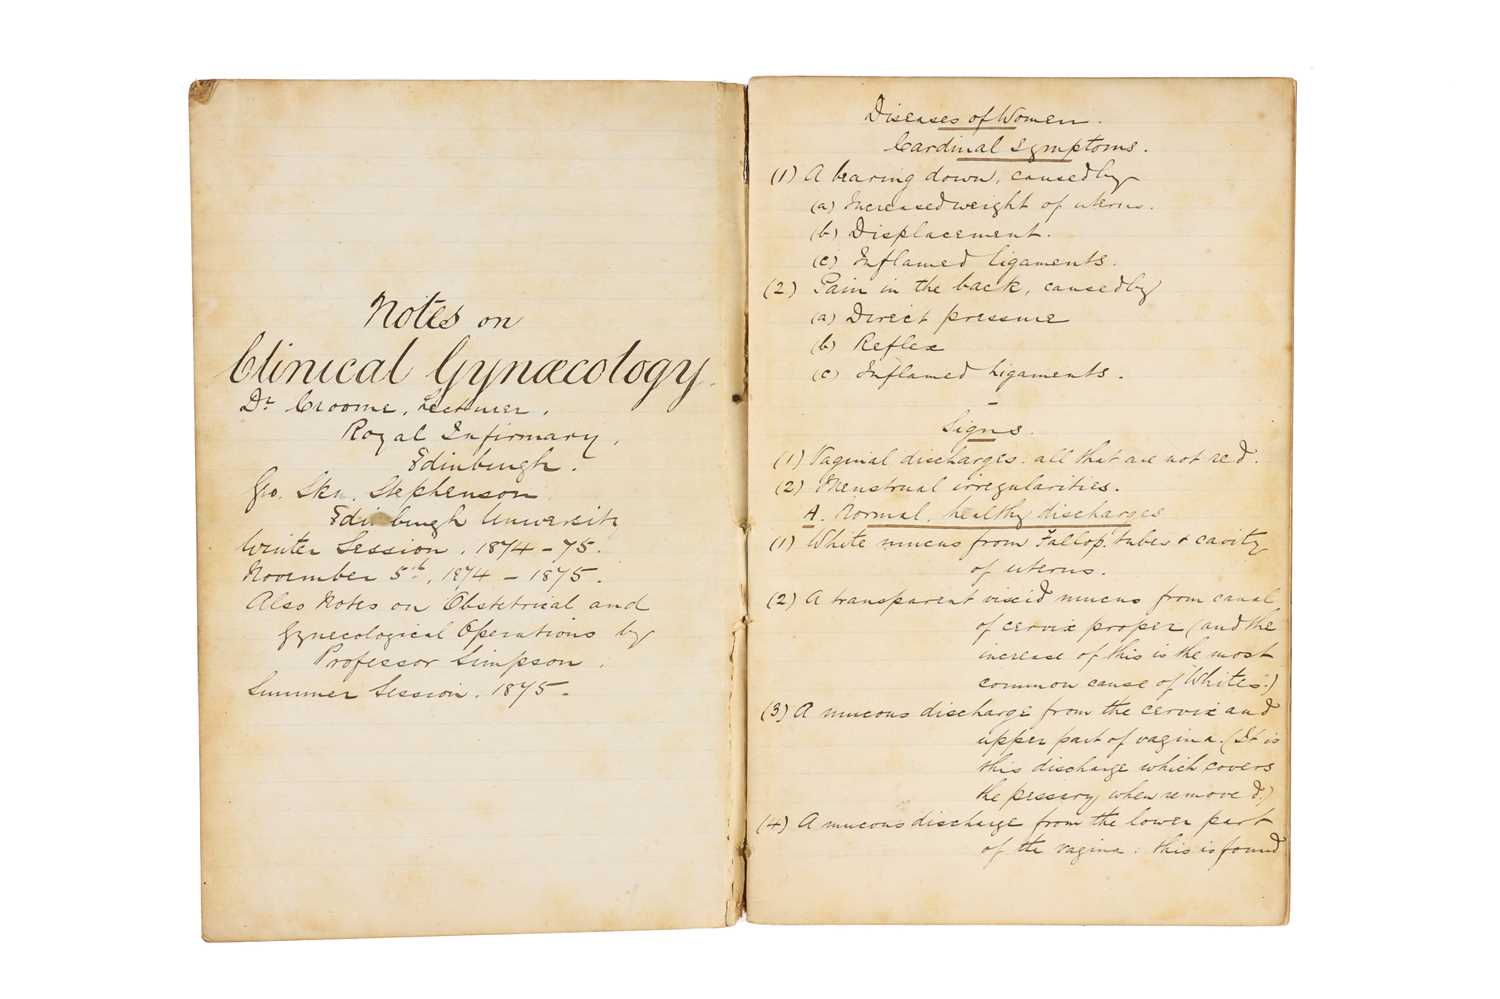 Notes on
Clinical Gynæcology.
Dr Croome, Lecturer,
Royal Infirmary,
Edinburgh.
Geo. Stephenson
Edinburgh University
Winter Session. 1874-75.
November 5th, 1874 - 1875.
Also Notes on Obstetrical and
Gynecological Operations by
Professor Simpson.
Summer Session. 1875-
Diseases of Women.
Cardinal Symptoms.
(1) A bearing down, caused by
(a) Increased weight of uterus.
(b) Displacement.
(c) Inflamed ligaments.
(2) Pain in the back, caused by
(a) Direct pressure
(b) Reflex
(c) Inflamed Ligaments.
Signs.
(1) Vaginal discharges: all that are not red.
(2) Menstrual irregularities.
A. Normal, healthy discharges
(1) White mucus from Fallop. tubes & cavity
of uterus.
(2) A transparent viscid mucus from canal
of cervix proper (and the
increase of this is the most
common cause of "Whites".)
(3) A mucous discharge from the cervix and
upper part of vagina. (It is
this discharge which covers
the pessary when removed.)
(4) A mucous discharge from the lower part
of the vagina: this is found